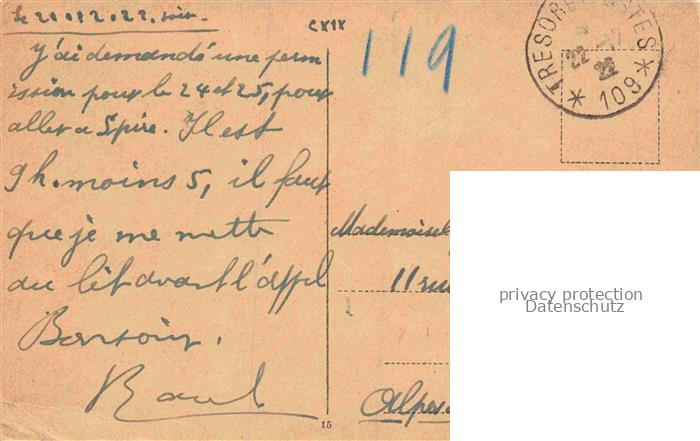 Le 20.12.22. soir.
CXIX
119
J'ai demandé une perm
ission pour le 24 et 25, pour
aller a Spire. Il est
9h. moins 5, il faut
que je me mette
au lit avant l'appel
Bonsoir.
Raoul
TRESOR POSTES
22
22
* 109 *
Mademoisel
11 rue
Alpes
15
privacy protection
Datenschutz